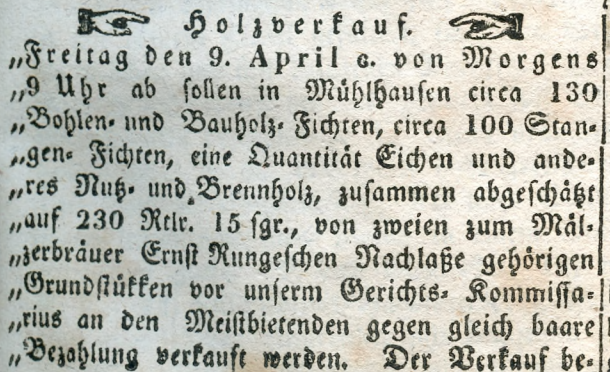 Holzverkauf.
„Freitag den 9. April c. von Morgens
„9 Uhr ab sollen in Mühlhausen circa 130
„Bohlen- und Bauholz- Fichten, circa 100 Stan-
„gen- Fichten, eine Quantität Eichen und ande-
„res Nutz- und Brennholz, zusammen abgeschätzt
„auf 230 Rtlr. 15 sgr., von zweien zum Mäl-
„zerbräuer Ernst Rungeschen Nachlaße gehörigen
„Grundstükken vor unserm Gerichts- Kommissa-
„rius an den Meistbietenden gegen gleich baare
„Bezahlung verkauft werden. Der Verkauf be-